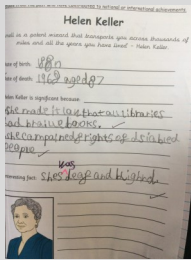 national or international achievements
Helen Keller
well is a potent wizard that transports you across thousands of
miles and all the years you have lived" - Helen Keller
Date of birth: 1880
Date of death: 1968 aged 87
Helen Keller is significant because:
she made it law that all libraries
had braille books.
she campained rights of
people
was
Interesting fact: she deaf and